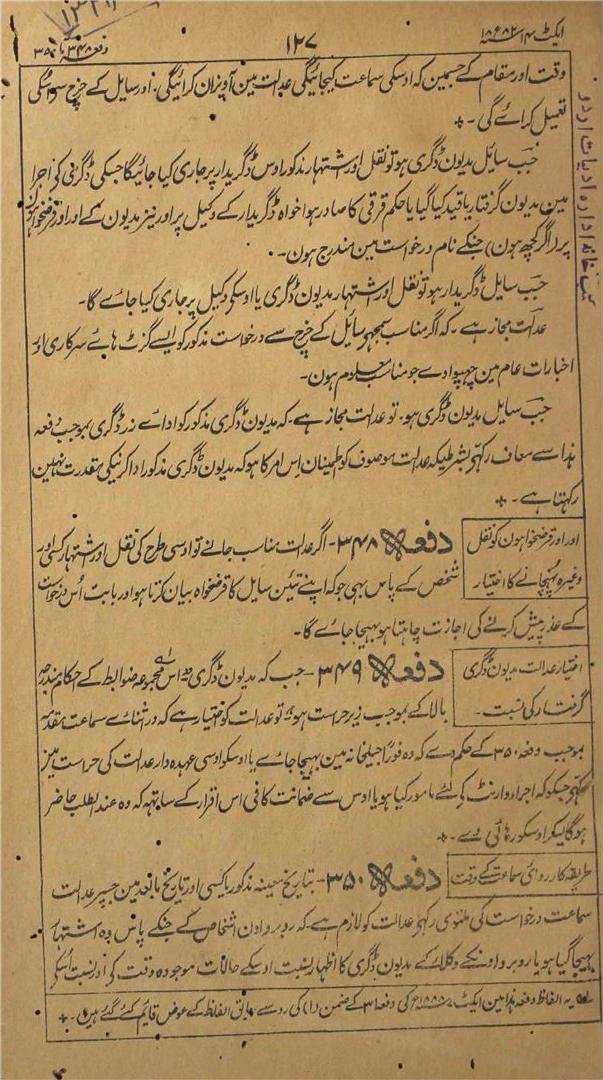 ایکٹ ۱۴ سنہ ۱۸۸۲ع
۱۲۷
دفعہ ۳۴۸ تا ۳۵۰
وقت اور مقام کے جسمین کہ اوسکی سماعت کیجائیگی عدالت مین آویزان کرائیگی ۔ اور سایل کے خرچ سے اوسکی
تعمیل کرائے گی ۔
جب سائل مدیون ڈگری ہو تو نقل اور اشتہار مذکور اوس ڈگریدار پر جاری کیا جائیگا جسکی ڈگری کے اجرا
مین مدیون گرفتار یا قید کیا گیا یا حکم قرقی کا صادر ہوا خواہ ڈگریدار کے وکیل پر اور نیز مدیون کے اور اور قرضخواہون
پر (اگر کچھ ہون) جنکے نام درخواست مین مندرج ہون ۔
جب سایل ڈگریدار ہو تو نقل اور اشتہار مدیون ڈگری یا اوسکے وکیل پر جاری کیا جائے گا ۔
عدالت مجاز ہے ۔ کہ اگر مناسب سمجھے سائل کے خرچ سے درخواست مذکور کو ایسے گزٹ ہائے سرکاری اور
اخبارات عام مین چھپوادے جو مناسب معلوم ہون ۔
جب سایل مدیون ڈگری ہو ۔ تو عدالت مجاز ہے ۔ کہ مدیون ڈگری مذکور کو ادائے زر ڈگری بموجب دفعہ
ہذا سے معاف رکھے بشرطیکہ عدالت موصوف کو اطمینان اس امر کا ہو کہ مدیون ڈگری مذکور ادا کرنیکی مقدرت نہین
رکھتا ہے ۔
اور اور قرضخواہون کو نقل
وغیرہ پہنچانے کا اختیار
دفعہ ۳۴۸ ۔ اگر عدالت مناسب جانے تو اوسی طرح کی نقل اور اشتہار کسی اور
شخص کے پاس بھی جو کہ اپنے تئین سایل کا قرضخواہ بیان کرتا ہو اور بابت اُس درخواست
کے عذر پیش کرنے کی اجازت چاہتا ہو بھیجا جائے گا ۔
اختیار عدالت مدیون ڈگری
گرفتار کی نسبت ۔
دفعہ ۳۴۹ ۔ جب کہ مدیون ڈگری اس مجموعہ ضوابط کے احکام مندرجہ
بالا کے بموجب زیر حراست ہو تو عدالت کو اختیار ہے کہ در اثنائے سماعت مقدمہ
بموجب دفعہ ۳۵۰ کے حکم دے کہ وہ فوراً جیلخانہ مین بھیجا جائے یا اوسکو اوسی عہدہ دار عدالت کی حراست مین
رکھے جسکو کہ اجراء وارنٹ کے لئے مامور کیا ہو یا اوس سے ضمانت کافی اس اقرار کے ساتھ کہ وہ عند الطلب حاضر
ہوگا لیکر اوسکو رہائی دے ۔
طریقہ کارروائی سماعت کے وقت
دفعہ ۳۵۰ ۔ بتاریخ معینہ مذکور یا کسی اور تاریخ مابعد مین جسپر عدالت
سماعت درخواست کی ملتوی رکھے عدالت کو لازم ہے کہ روبرو اون اشخاص کے جنکے پاس وہ اشتہار
بھیجا گیا ہو یا روبرو اونکے وکلا کے مدیون ڈگری کا اظہار بنسبت اوسکے حالات موجودہ وقت کے اور بنسبت اُسکی
یہ الفاظ دفعہ ہذا مین ایکٹ ۷ سنہ ۱۸۸۸ع کی دفعہ ۳۱ کے ضمن (۱) کی رو سے سابق الفاظ کے عوض قایم کئے گئے ہین ۔
کتب خانہ ادارہ ادبیات اردو